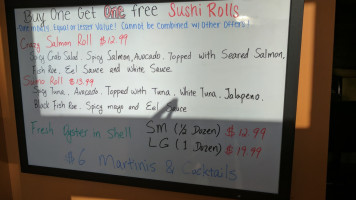 Buy One Get One free Sushi Rolls
Equal or lesser Value! Cannot be Combined w/ Other Offers!
Crazy Salmon Roll $12.99
Spicy Crab Salad, Spicy Salmon, Avocado, Topped with Seared Salmon,
Fish Roe, Eel Sauce and White Sauce
Roll $13.99
Spicy Tuna, Avocado, Topped with Tuna, White Tuna, Jalapeno,
Black Fish Roe, Spicy mayo and Eel Sauce
Fresh Oyster in Shell
SM (½ Dozen) $12.99
LG (1 Dozen) $19.99
$6 Martinis & Cocktails